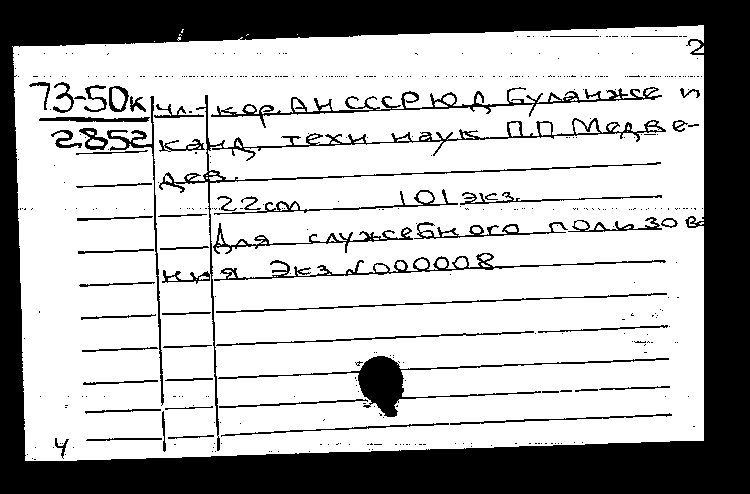 2
73-50к чл.-кор. АН СССР Ю.Д. Буланже и
2852 канд. техн. наук П.П. Медве-
дев.
22 см. 101 экз.
Для служебного пользова
ния Экз №000008
4